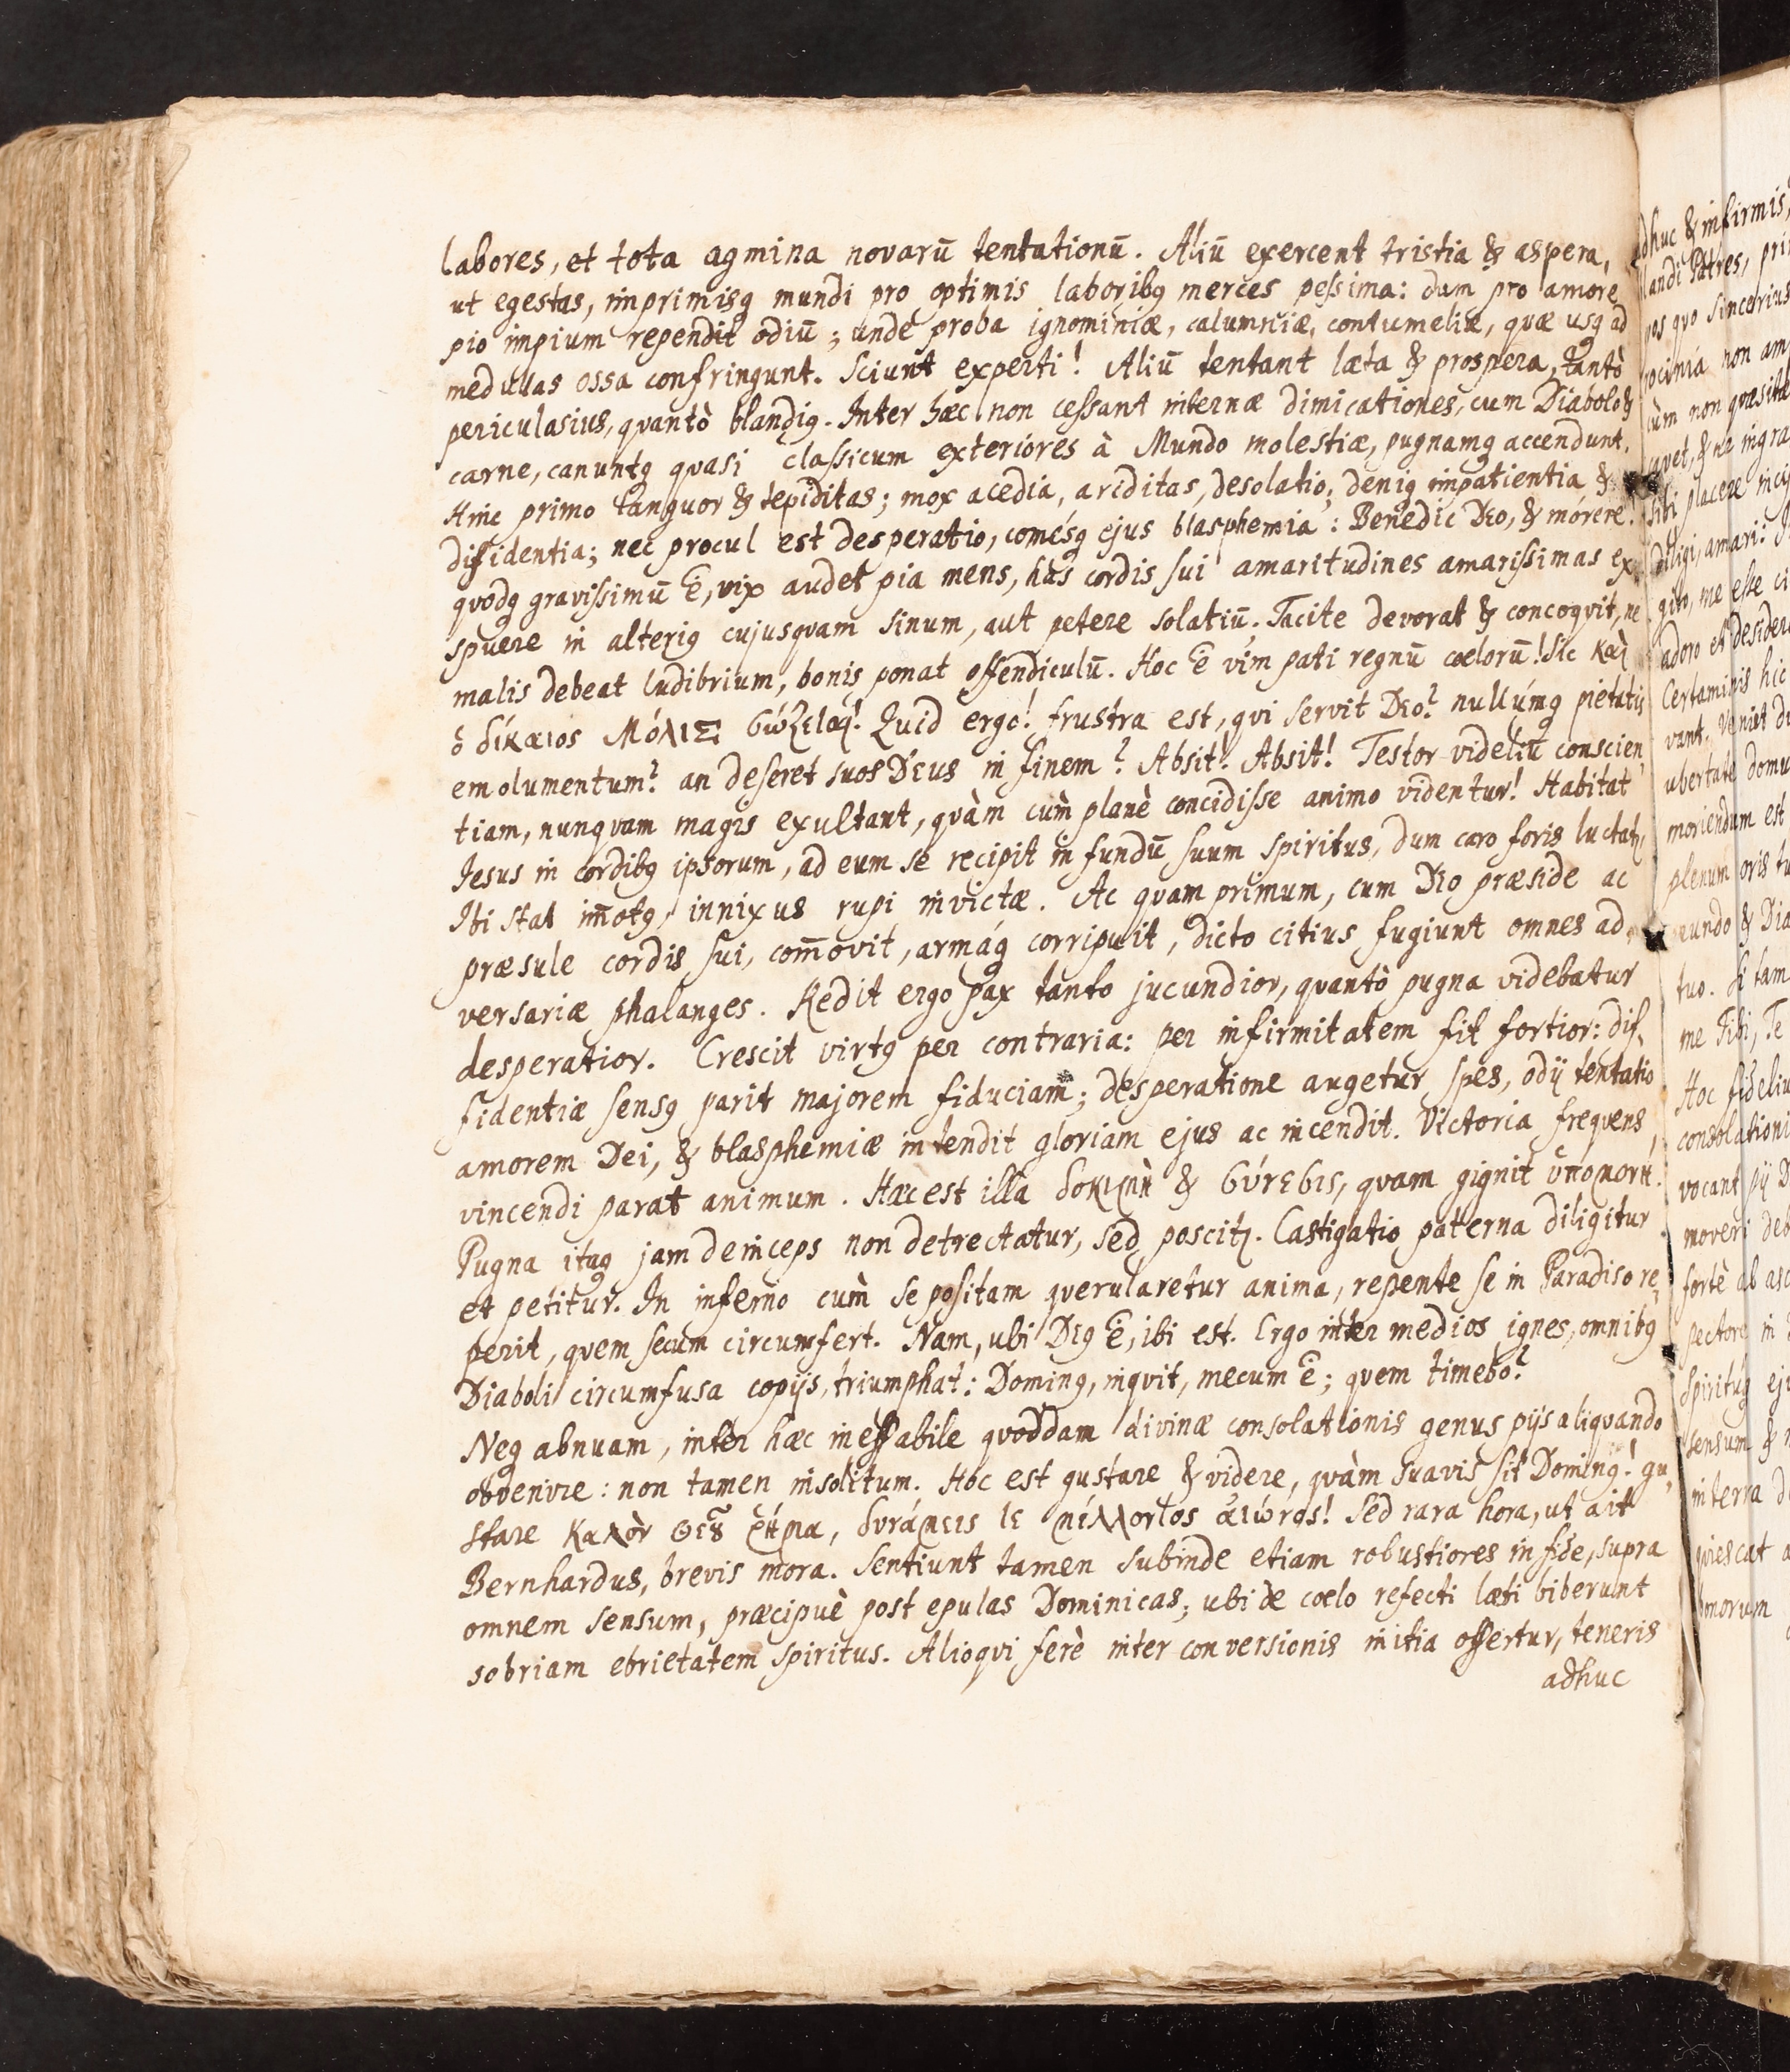 labores, et tota agmina novarū tentationū. Aliū exercent tristia & aspera,
ut egestas, inprimisq mundi pro optimis laboribq merces peſsima: dum pro amore
pio impium rependit odiū; unde proba ignominiæ, calumniæ, contumeliæ, quæ usq ad
medullas ossa confringunt. Sciunt experti! Aliū tentant læta & prospera, tantò
periculasius, qvantò blandiq. Inter hæc non ceſsant internæ dimicationes, cum Diabolo &
carne, canuntq qvasi claſsicum exteriores à Mundo molestiæ, pugnamq accendunt.
Hinc primo languor & tepiditas; mox acedia, ariditas, desolatio; deniq impatientia &
diffidentia; nec procul est desperatio, comésq ejus blasphemia: Benedic Deo, & mórere!
qvodq graviſsimū ē, vix audet pia mens, has cordis sui amaritudines amariſsimas ex,
spuere in alteriq cujusqvam sinum, aut petere solatiū. Tacite devorat & concoqvit, ne
malis debeat ludibrium, bonis ponat offendiculū. Hoc ē vim pati regnū cœlorū! Sic καὶ
ὁ δίκαιος Μόλις σώζεται! Quid ergo! frustra est, qvi servit Deo? nullúmq pietatis
emolumentum? an deseret suos Deus in finem? Absit! Absit! Testor fideliū conscien,
tiam, nunqvam magis exultant, qvàm cùm planè concidiſse animo videntur! Habitat
Jesus in cordibq ipsorum, ad eum se recipit in fundū suum spiritus, dum caro foris luctatr,
Ibi stat im̄otq, innixus rupi invictæ. Ac qvam primum, cum Deo præside ac
præsule cordis sui, com̄ovit, armáq corripuit, dicto citius fugiunt omnes ad,
versariæ phalanges. Redit ergo pax tanto jucundior, qvantò pugna videbatur
desperatior. Crescit virtq per contraria: per infirmitatem fit fortior: dif,
fidentiæ sensq parit majorem fiduciam; desperatione augetur spes, odij tentatio
amorem Dei, & blasphemiæ intendit gloriam ejus ac incendit. Victoria freqvens,
vincendi parat animum. Hæc est illa δοκιμὴ & σύνεσις, qvam gignit ὑπομονή.
Pugna itaq jam deinceps non detrectatur, sed poscitr. Castigatio paterna diligitur
et petitur. In inferno cùm se positam qverularetur anima, repente se in Paradiso re,
perit, qvem secum circumfert. Nam, ubi Deq ē, ibi est. Ergo inter medios ignes, omnibq
Diaboli circumfusa copijs, triumphat: Dominq, inqvit, mecum ē; qvem timebo?
Neq abnuam, inter hæc ineffabile qvoddam divinæ consolationis genus pijs aliqvando
obvenire: non tamen insolitum. Hoc est gustare & videre, qvàm suavis sit Dominq! gu,
stare Καλὸν Θεοῦ ῥῆμα, δυνάμεις τε μέλλοντος ἀιῶνος! Sed rara hora, ut ait
Bernhardus, brevis mora. Sentiunt tamen subinde etiam robustiores in fide, supra
omnem sensum, præcipuè post epulas Dominicas; ubi de cœlo refecti læti biberunt
sobriam ebrietatem Spiritus. Alioqvi ferè inter conversionis initia offertur, teneris
adhuc